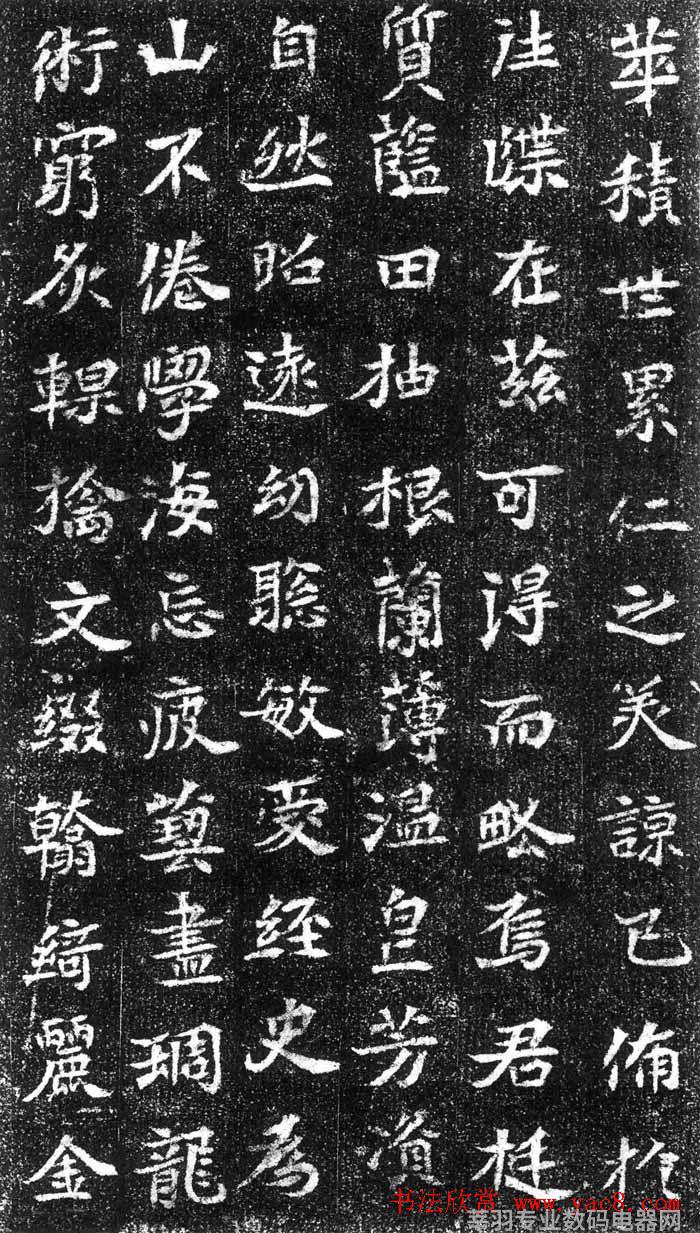 華積世累仁之美諒已俻於
註諜在茲可得而略焉君挺
質藍田抽根蘭薄温皀芳資
自然昭遠幼聦敏愛經史為
山不倦學海忘疲蓺盡琱龍
術窮炙輠摛文綴翰綺麗金
书法欣赏 www.yac8.com
羽专业数码电器网